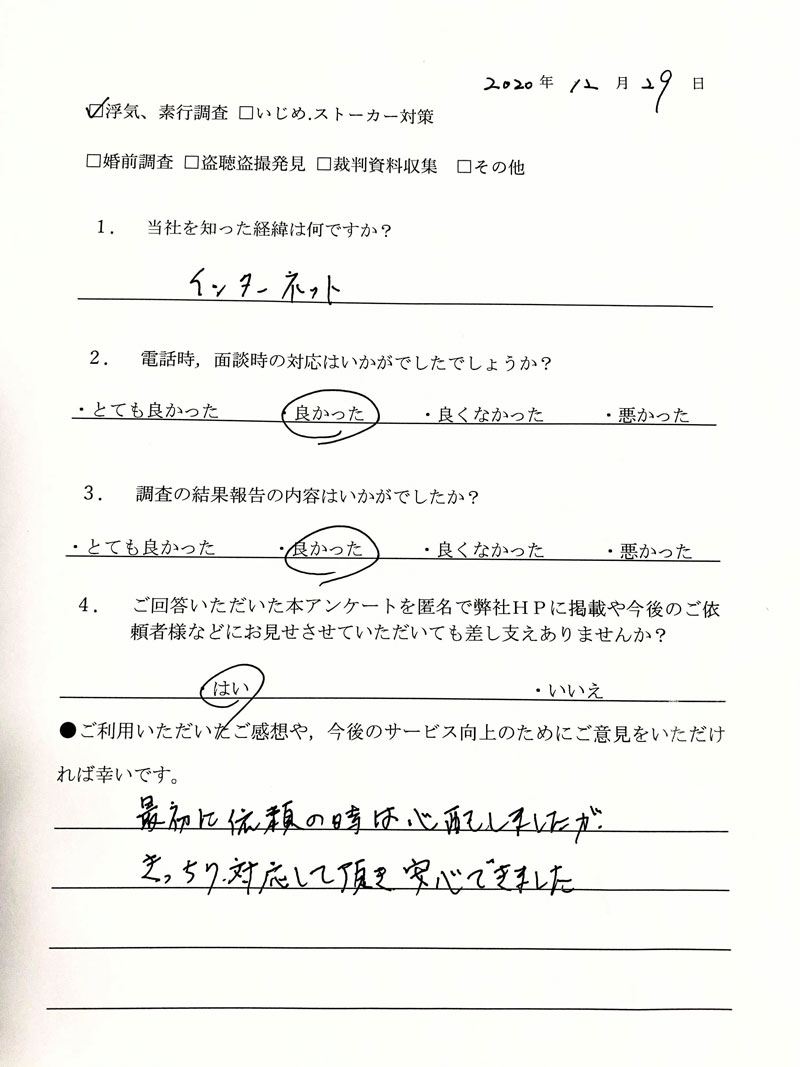 2020年 12月 29日
☑浮気、素行調査 □いじめ.ストーカー対策
□婚前調査 □盗聴盗撮発見 □裁判資料収集 □その他
1. 当社を知った経緯は何ですか？
インターネット
2. 電話時，面談時の対応はいかがでしたでしょうか？
・とても良かった ・良かった ・良くなかった ・悪かった
3. 調査の結果報告の内容はいかがでしたか？
・とても良かった ・良かった ・良くなかった ・悪かった
4. ご回答いただいた本アンケートを匿名で弊社ＨＰに掲載や今後のご依
頼者様などにお見せさせていただいても差し支えありませんか？
・はい ・いいえ
●ご利用いただいたご感想や，今後のサービス向上のためにご意見をいただけ
れば幸いです。
最初に依頼の時は心配しましたが、
きっちり対応して頂き安心できました